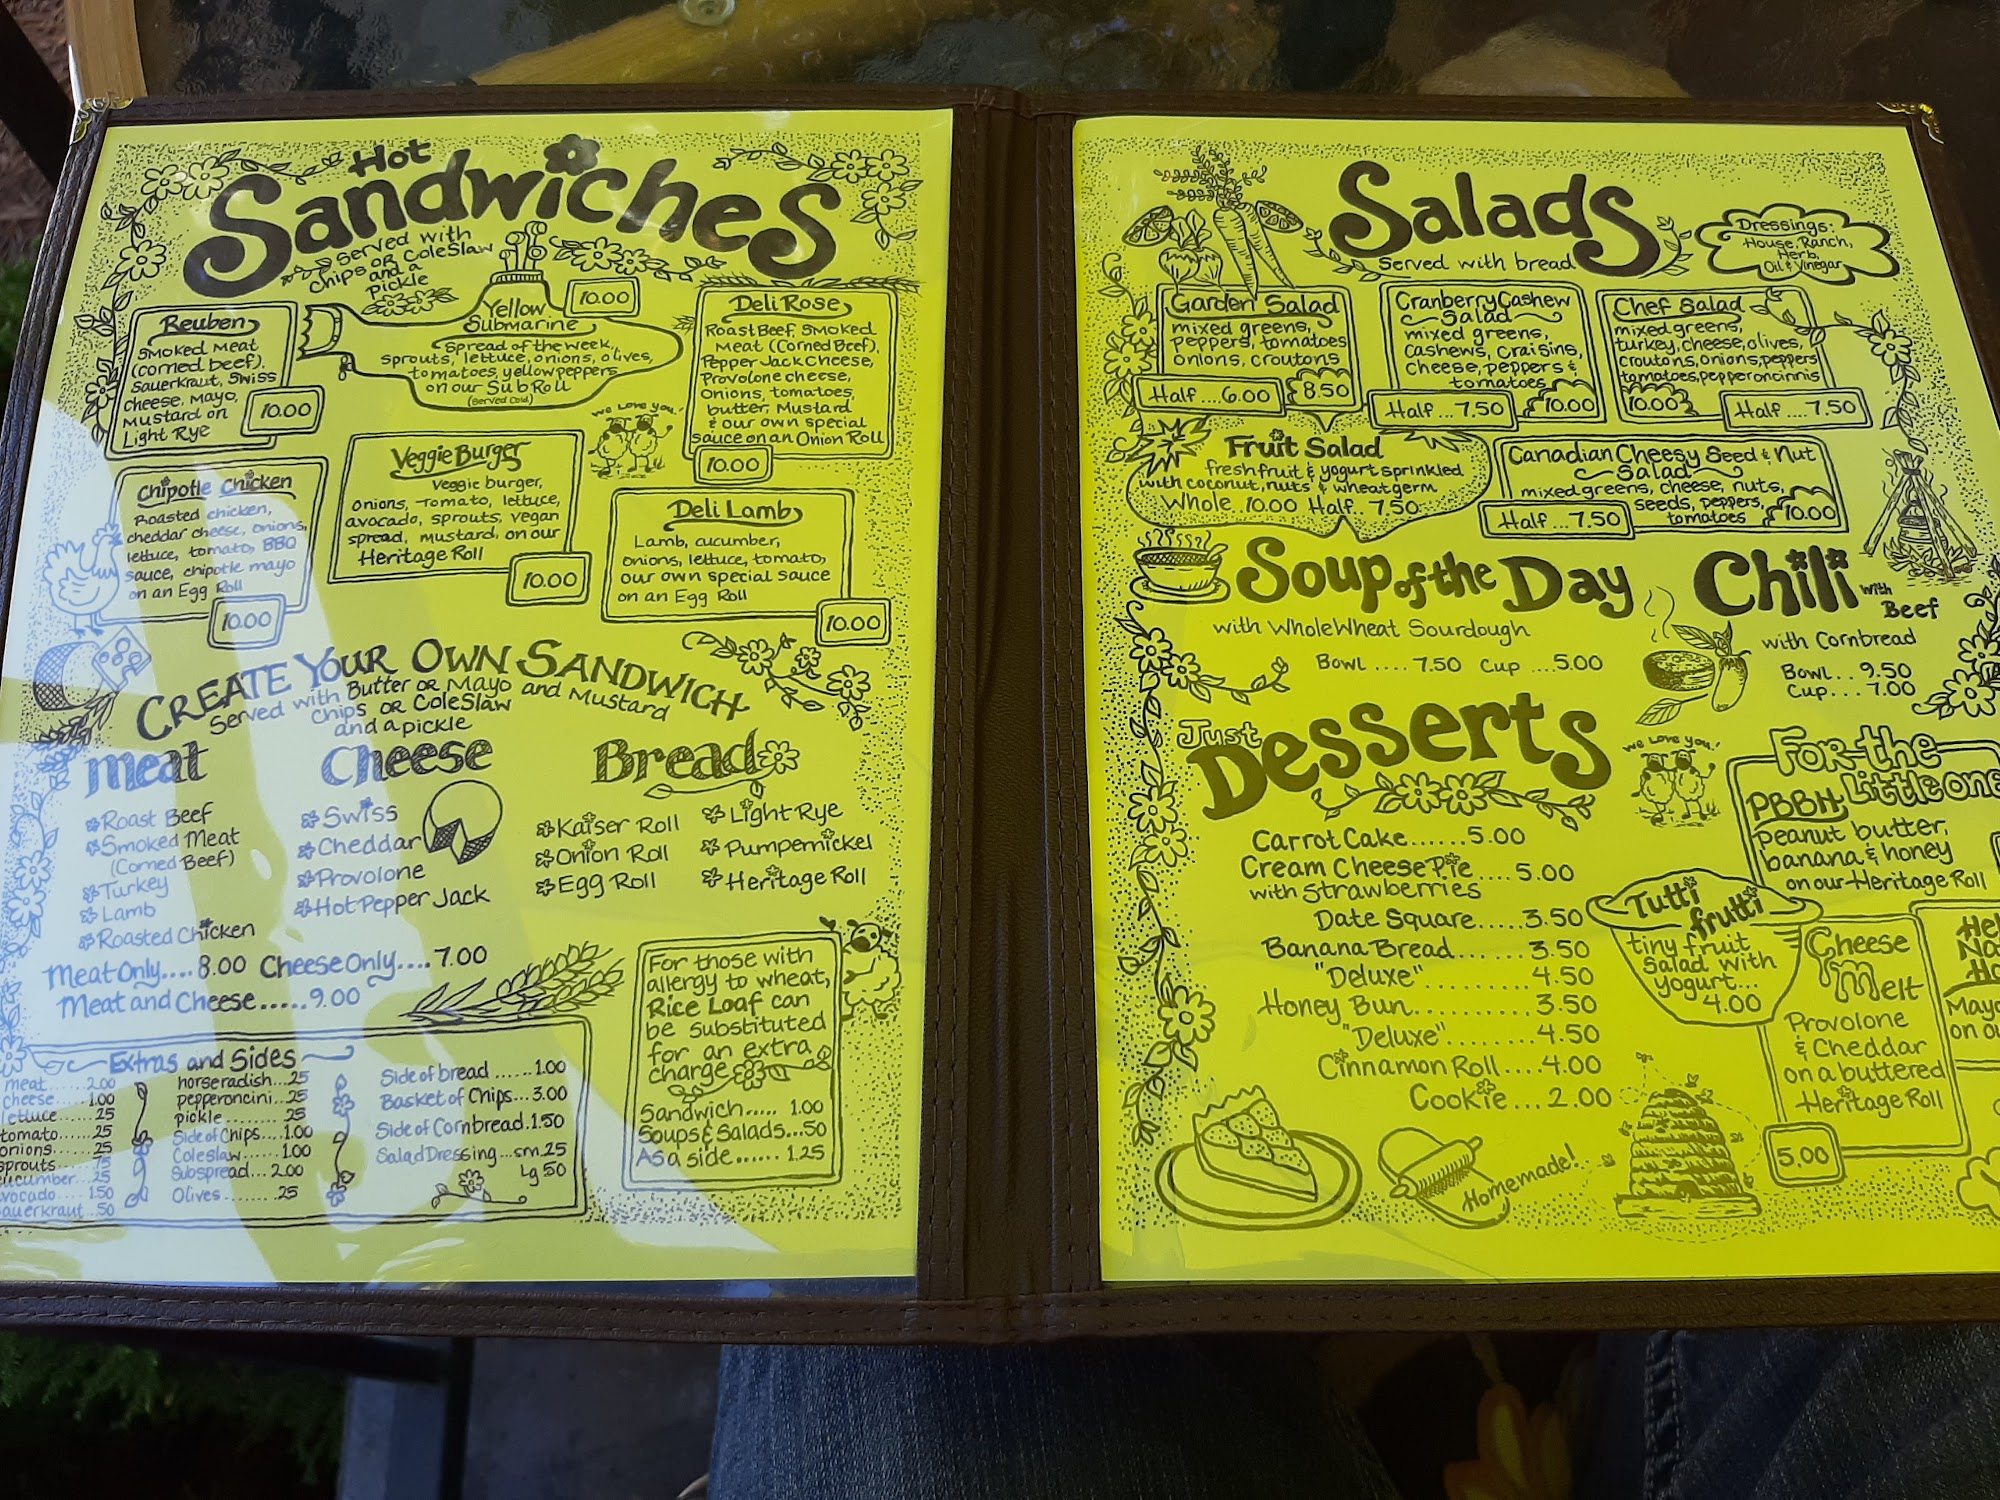 Hot
Sandwiches
Served with
Chips OR ColeSlaw
and a
pickle
Reuben
Smoked Meat
(corned beef),
Sauerkraut, Swiss
Cheese, Mayo,
Mustard on
Light Rye
10.00
Yellow
Submarine
10.00
Spread of the week,
sprouts, lettuce, onions, olives,
tomatoes, yellow peppers
on our Sub Roll
(Served Cold)
Deli Rose
Roast Beef, Smoked
Meat (Corned Beef),
Pepper Jack Cheese,
Provolone cheese,
Onions, tomatoes,
butter, Mustard
& our own special
sauce on an Onion Roll
10.00
We Love you!
Chipotle Chicken
Roasted chicken,
cheddar cheese, onions,
lettuce, tomato, BBQ
sauce, chipotle mayo
on an Egg Roll
10.00
Veggie Burger
Veggie burger,
onions, Tomato, lettuce,
avocado, sprouts, vegan
spread, mustard, on our
Heritage Roll
10.00
Deli Lamb
Lamb, cucumber,
onions, lettuce, tomato,
our own special sauce
on an Egg Roll
10.00
CREATE YOUR OWN SANDWICH
Served with Butter OR Mayo and Mustard
Chips OR ColeSlaw
and a pickle
Meat
Roast Beef
Smoked Meat
(Corned Beef)
Turkey
Lamb
Roasted Chicken
Cheese
Swiss
Cheddar
Provolone
Hot Pepper Jack
Bread
Kaiser Roll
Onion Roll
Egg Roll
Light Rye
Pumpernickel
Heritage Roll
Meat Only.... 8.00 Cheese Only.... 7.00
Meat and Cheese ..... 9.00
For those with
allergy to wheat,
Rice Loaf can
be substituted
for an extra
charge
Sandwich..... 1.00
Soups & Salads...50
As a side...... 1.25
Extras and Sides
meat......2.00
cheese.....1.00
lettuce......25
tomato......25
onions......25
sprouts
cucumber...25
avocado....1.50
sauerkraut...50
horseradish...25
pepperoncini...25
pickle........25
Side of Chips....1.00
Coleslaw......1.00
Subspread...2.00
Olives........25
Side of bread ......1.00
Basket of Chips...3.00
Side of Cornbread.1.50
Salad Dressing...sm.25
Lg 50
Salads
Served with bread
Dressings:
House, Ranch,
Herb,
Oil & Vinegar
Garden Salad
mixed greens,
peppers, tomatoes
onions, croutons
Half....6.00
8.50
Cranberry Cashew
Salad
mixed greens,
Cashews, Craisins,
Cheese, peppers &
tomatoes
Half...7.50
10.00
Chef Salad
mixed greens,
turkey, cheese, olives,
croutons, onions, peppers
tomatoes, pepperoncinnis
10.00
Half....7.50
Fruit Salad
fresh fruit & yogurt sprinkled
with coconut, nuts & wheatgerm
Whole 10.00 Half. 7.50
Canadian Cheesy Seed & Nut
Salad
mixed greens, cheese, nuts,
seeds, peppers,
tomatoes
Half...7.50
10.00
Soup of the Day
with Whole Wheat Sourdough
Bowl ....7.50 Cup ...5.00
Chili with Beef
with Cornbread
Bowl...9.50
Cup....7.00
Just
Desserts
Carrot Cake......5.00
Cream Cheese Pie....5.00
with strawberries
Date Square....3.50
Banana Bread.......3.50
"Deluxe".......4.50
Honey Bun..........3.50
"Deluxe".......4.50
Cinnamon Roll....4.00
Cookie...2.00
Homemade!
We Love you!
For the
Little one
PBBH
peanut butter,
banana & honey
on our Heritage Roll
Tutti
frutti
tiny fruit
salad with
yogurt...
4.00
Cheese
Melt
Provolone
& Cheddar
on a buttered
Heritage Roll
5.00